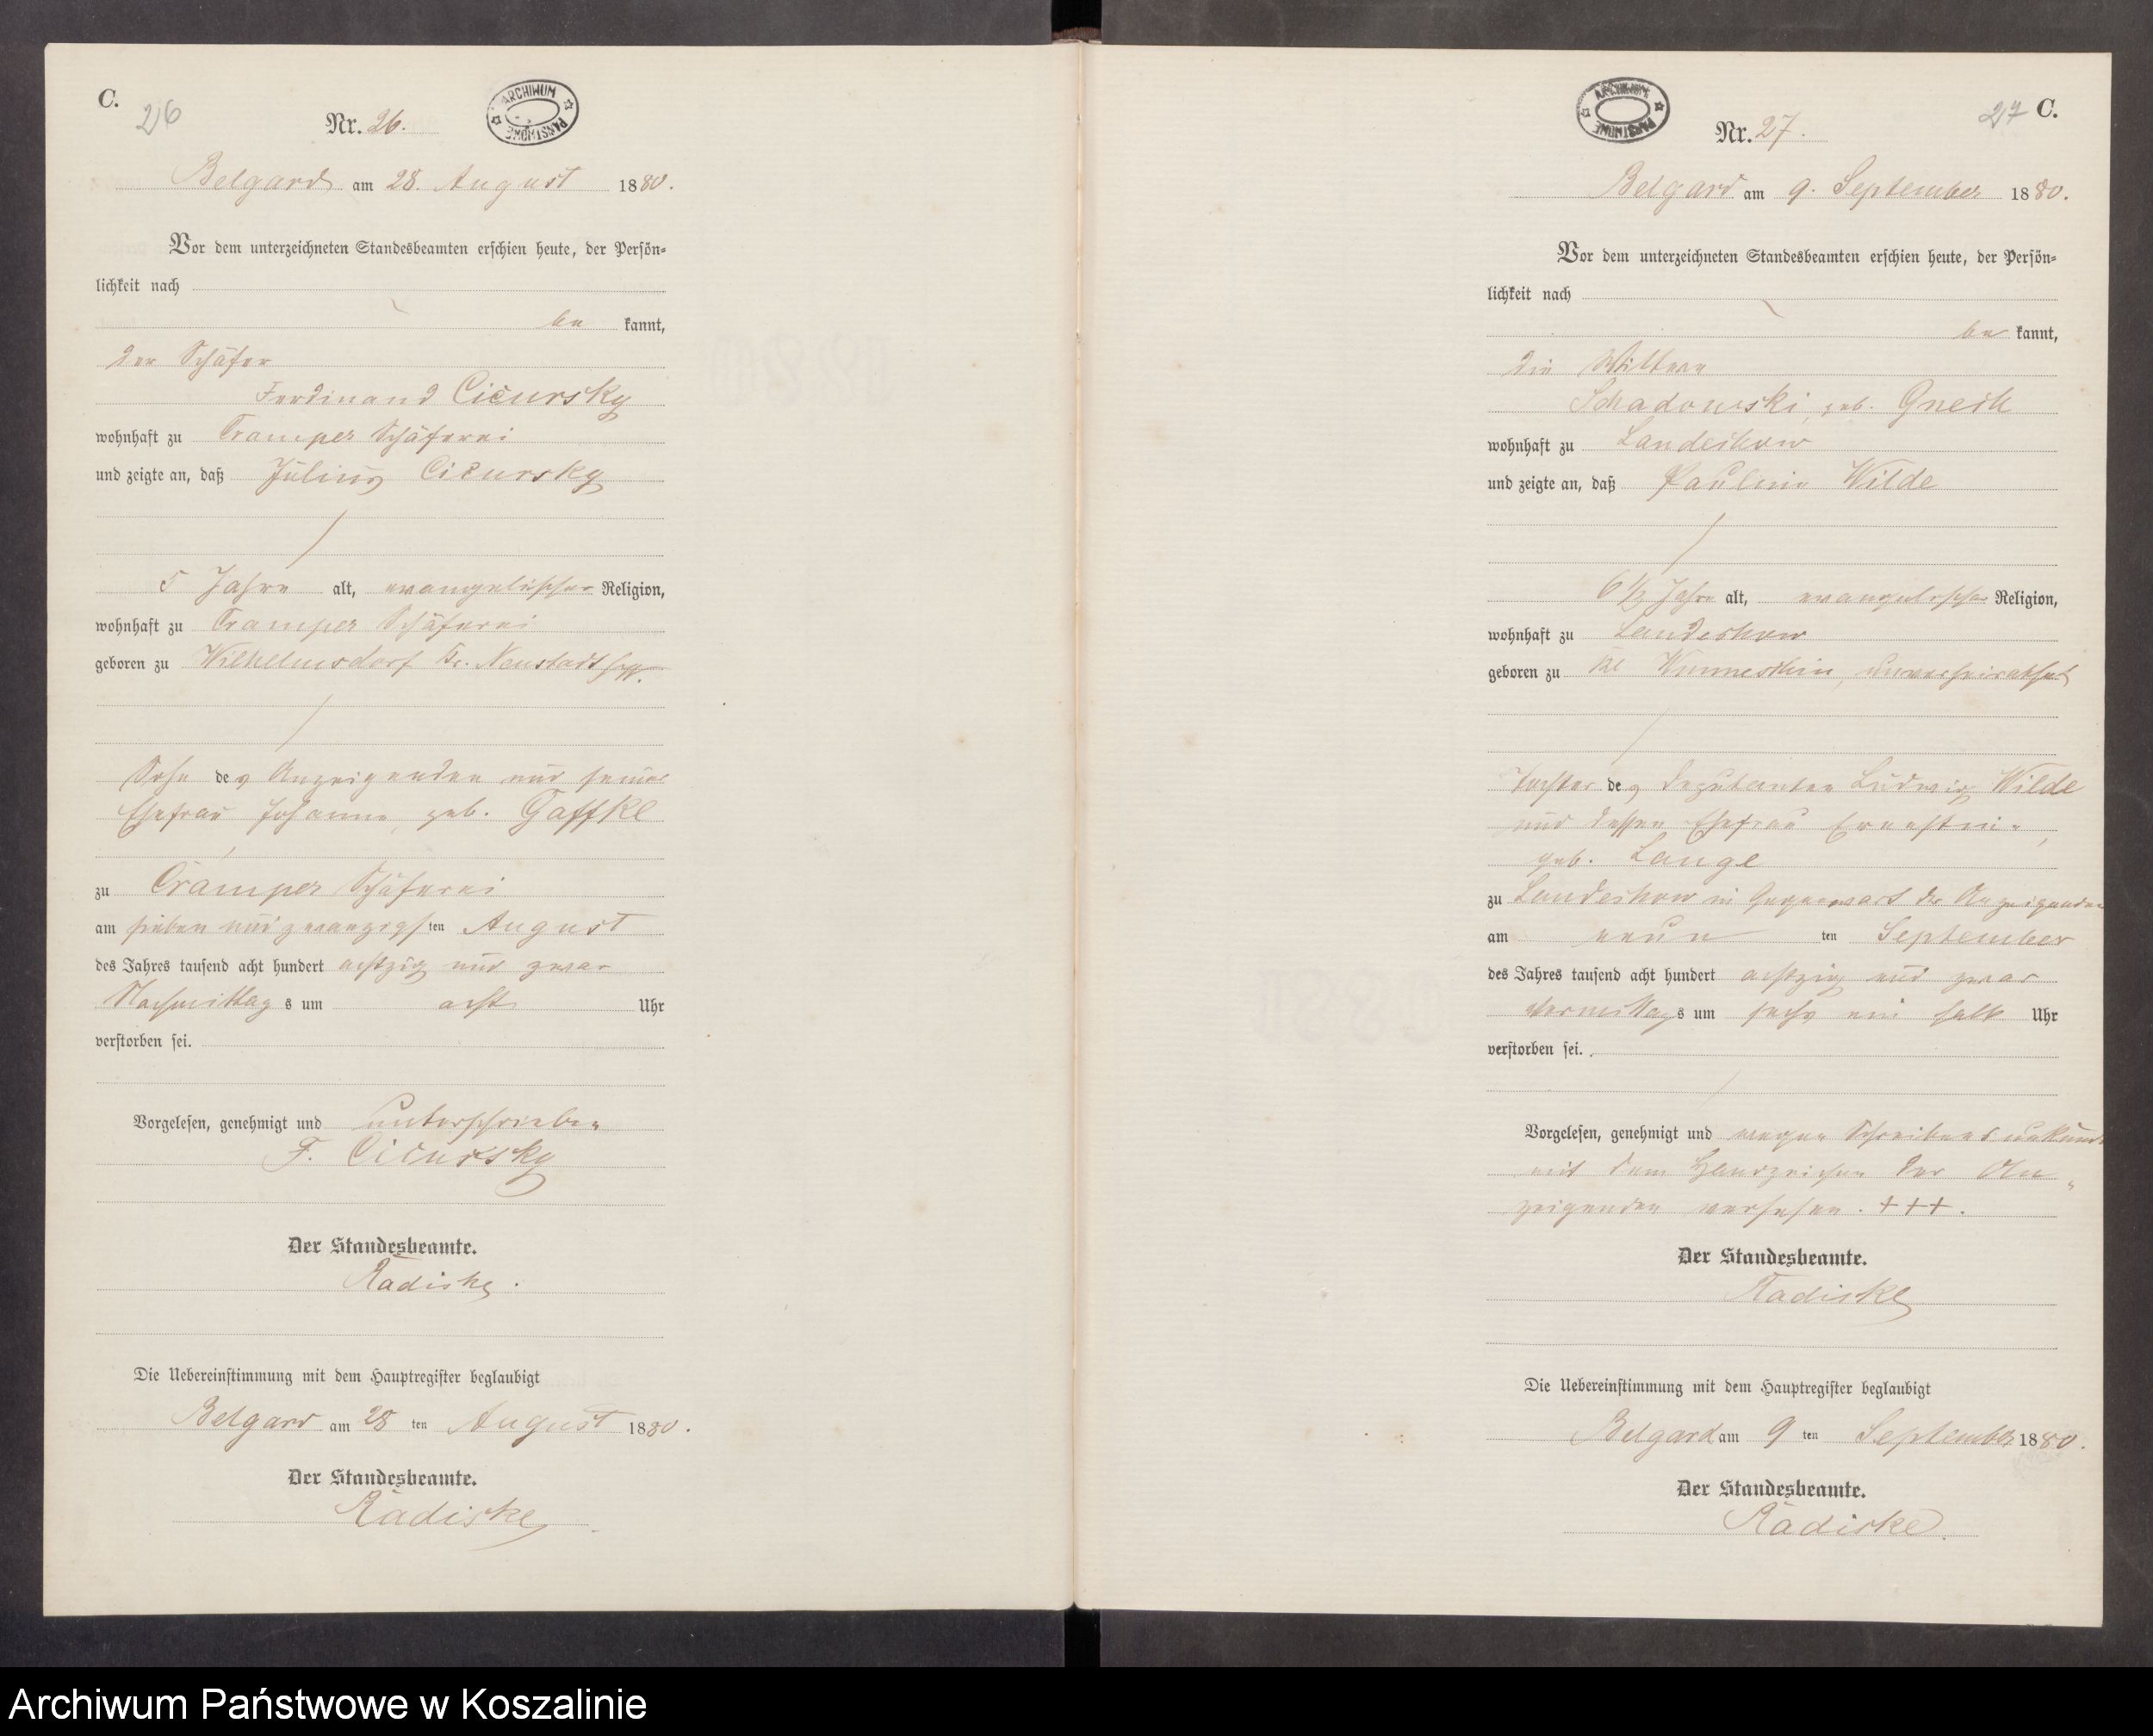 C.
26
Nr. 26.
ARCHIWUM PAŃSTWOWE
Belgard am 28. August 1880.
Vor dem unterzeichneten Standesbeamten erschien heute, der Persön-
lichkeit nach
be kannt,
der Schäfer
Ferdinand Cicursky
wohnhaft zu Cramper Schäferei
und zeigte an, daß Julius Cicursky
5 Jahre alt, evangelischer Religion,
wohnhaft zu Cramper Schäferei
geboren zu Wilhelmsdorf Kr. Neustadt
Sohn des Anzeigenden und seiner
Ehefrau Johanne, geb. Gaffke
zu Cramper Schäferei
am sieben und zwanzigsten August
des Jahres tausend acht hundert achtzig und zwar
Nachmittags um acht Uhr
verstorben sei.
Vorgelesen, genehmigt und unterschrieben
F. Cicursky
Der Standesbeamte.
Radiske.
Die Uebereinstimmung mit dem Hauptregister beglaubigt
Belgard am 28 ten August 1880.
Der Standesbeamte.
Radiske
27 C.
ARCHIWUM PAŃSTWOWE
Nr. 27.
Belgard am 9. September 1880.
Vor dem unterzeichneten Standesbeamten erschien heute, der Persön-
lichkeit nach
be kannt,
die Wittwe
Schadowski, geb. Gnech
wohnhaft zu Landechow
und zeigte an, daß Pauline Wilde
6 1/2 Jahre alt, evangelischer Religion,
wohnhaft zu Landechow
geboren zu Kl Wunneschin, unverheirathet
Tochter des Deputanten Ludwig Wilde
und dessen Ehefrau Ernestine,
geb. Lange
zu Landechow in Gegenwart der Anzeigenden
am neun ten September
des Jahres tausend acht hundert achtzig und zwar
Vormittags um sechs ein halb Uhr
verstorben sei.
Vorgelesen, genehmigt und wegen Schreibensunkunde
mit dem Handzeichen der An-
zeigenden versehen. +++.
Der Standesbeamte.
Radiske
Die Uebereinstimmung mit dem Hauptregister beglaubigt
Belgard am 9 ten September 1880.
Der Standesbeamte.
Radiske.
Archiwum Państwowe w Koszalinie